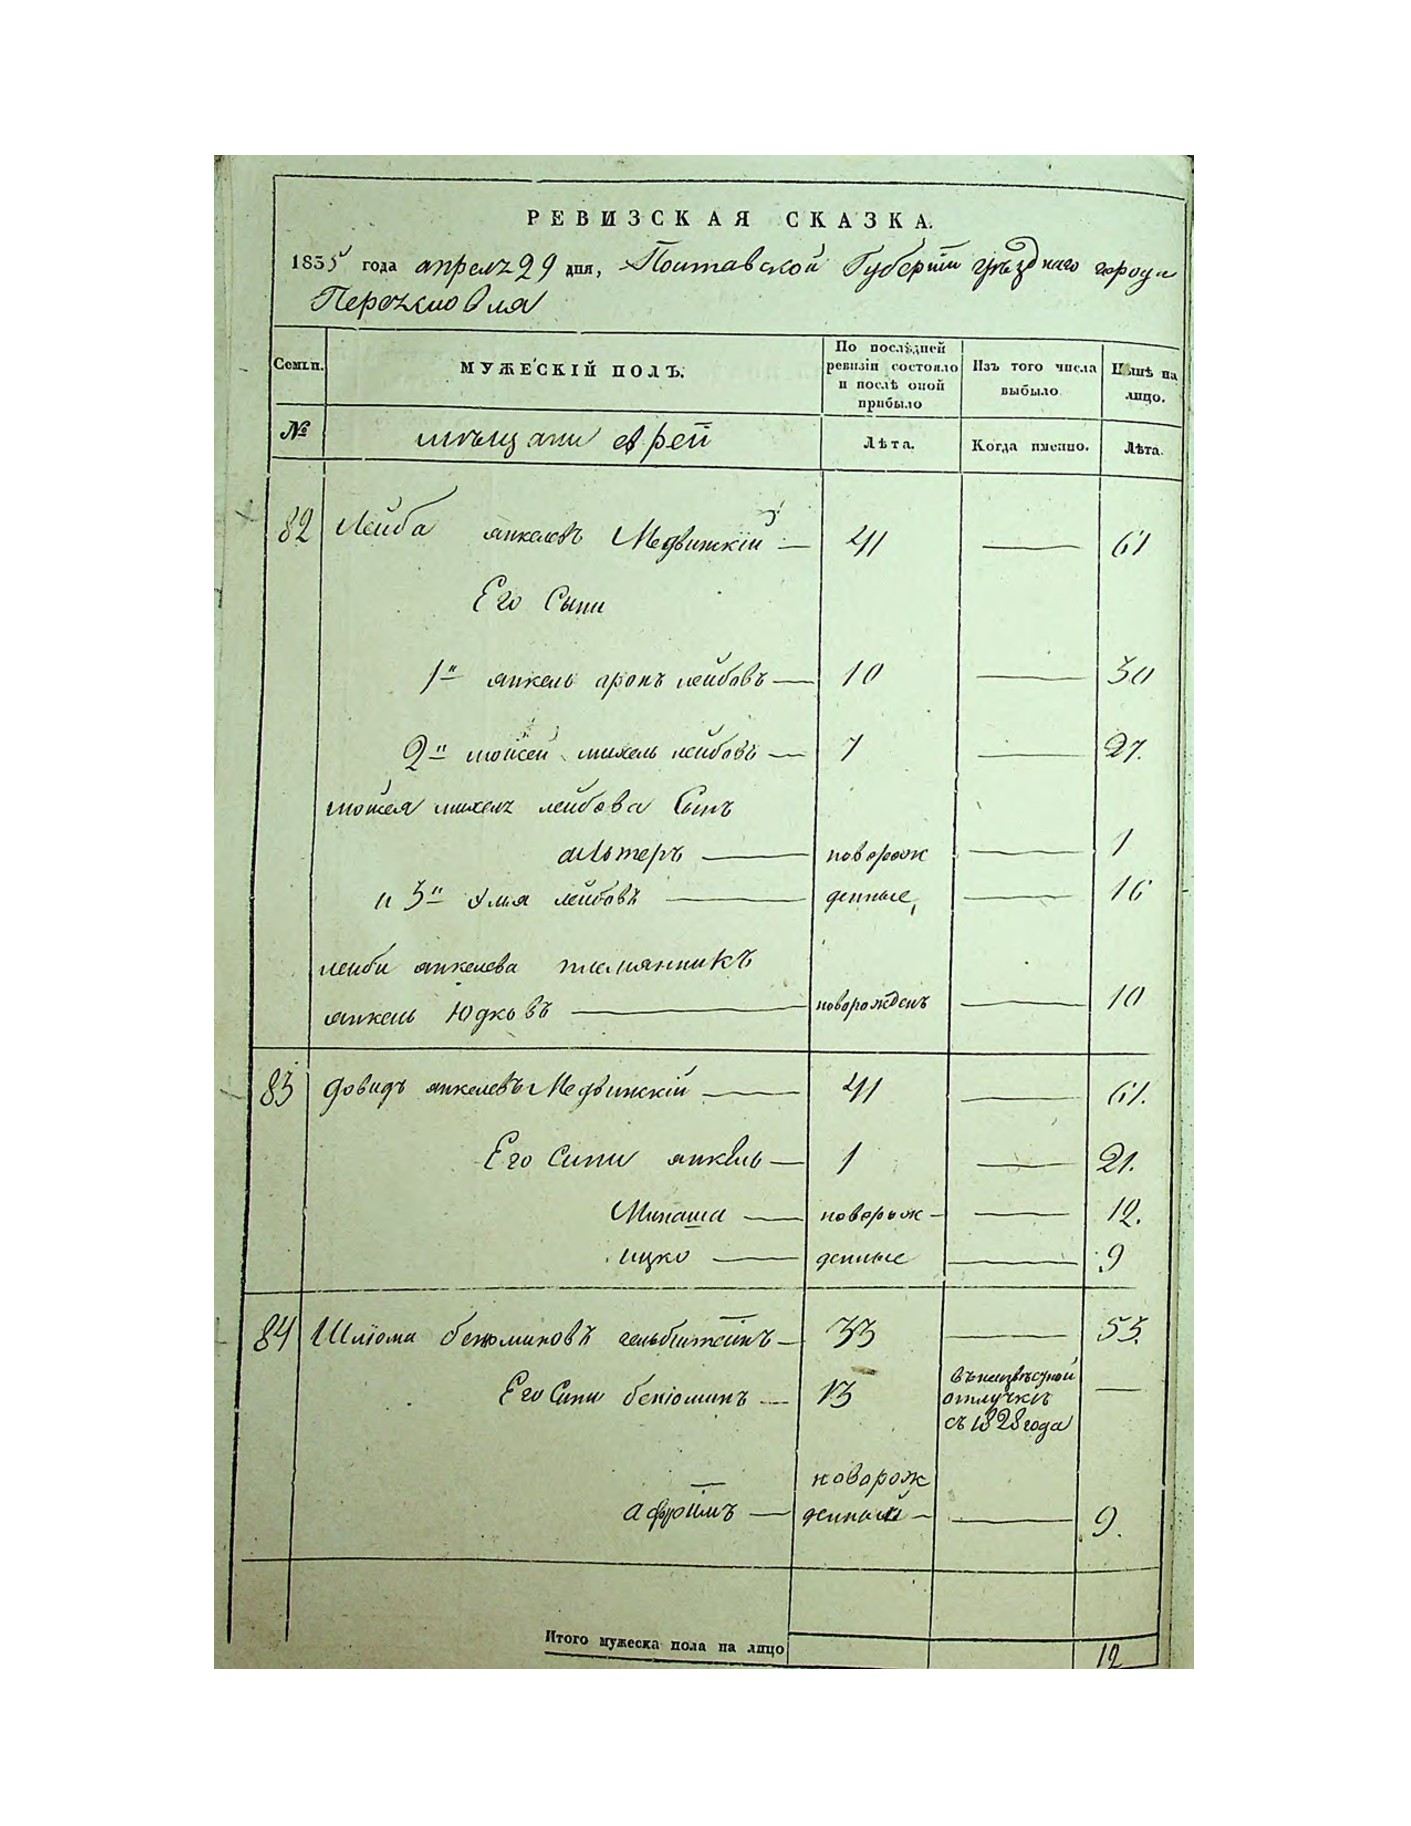 РЕВИЗСКАЯ СКАЗКА.
1835 года апреля 29 дня, Полтавской Губернии уѣзднаго города
Переяславля
Семьи. МУЖЕСКІЙ ПОЛЪ. По послѣдней ревизіи состояло и послѣ оной прибыло Изъ того числа выбыло Нынѣ на лицо.
№ мѣщани еврей Лѣта. Когда именно. Лѣта.
82 Лейба янкелевъ Медвинскій — 41 — 61
Его Сыни
1й янкель аронъ лейбовъ — 10 — 30
2й мойсей михель лейбовъ — 7 — 27.
мойсея михеля лейбова Сынъ
альтеръ — новорож — 1
и 3й лейбовъ — денные, — 16
лейби янкелева племянникъ
янкель Юдковъ — новорожденъ — 10
83 довидъ янкелевъ Медвинскій — 41 — 61.
Его Сини янкель — 1 — 21.
Минаша — новорож — 12.
ицко — денные — 9
84 Шліома бенюминовъ — 33 — 53.
Его Сини беніоминъ — 13 въ неизвѣстной отлучкѣ съ 1828 года —
новорож
афроимъ — денный — 9.
Итого мужеска пола на лицо 12